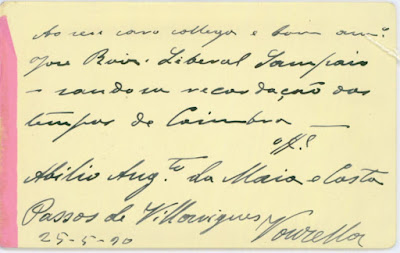 Ao seu caro collega e bom am.º
José Rod. Liberal Sampaio
– saudosa recordação dos
tempos de Coimbra
off.
Abilio Aug.to da Maia e Costa
Passos de Villarigues Vouzella
25-5-90